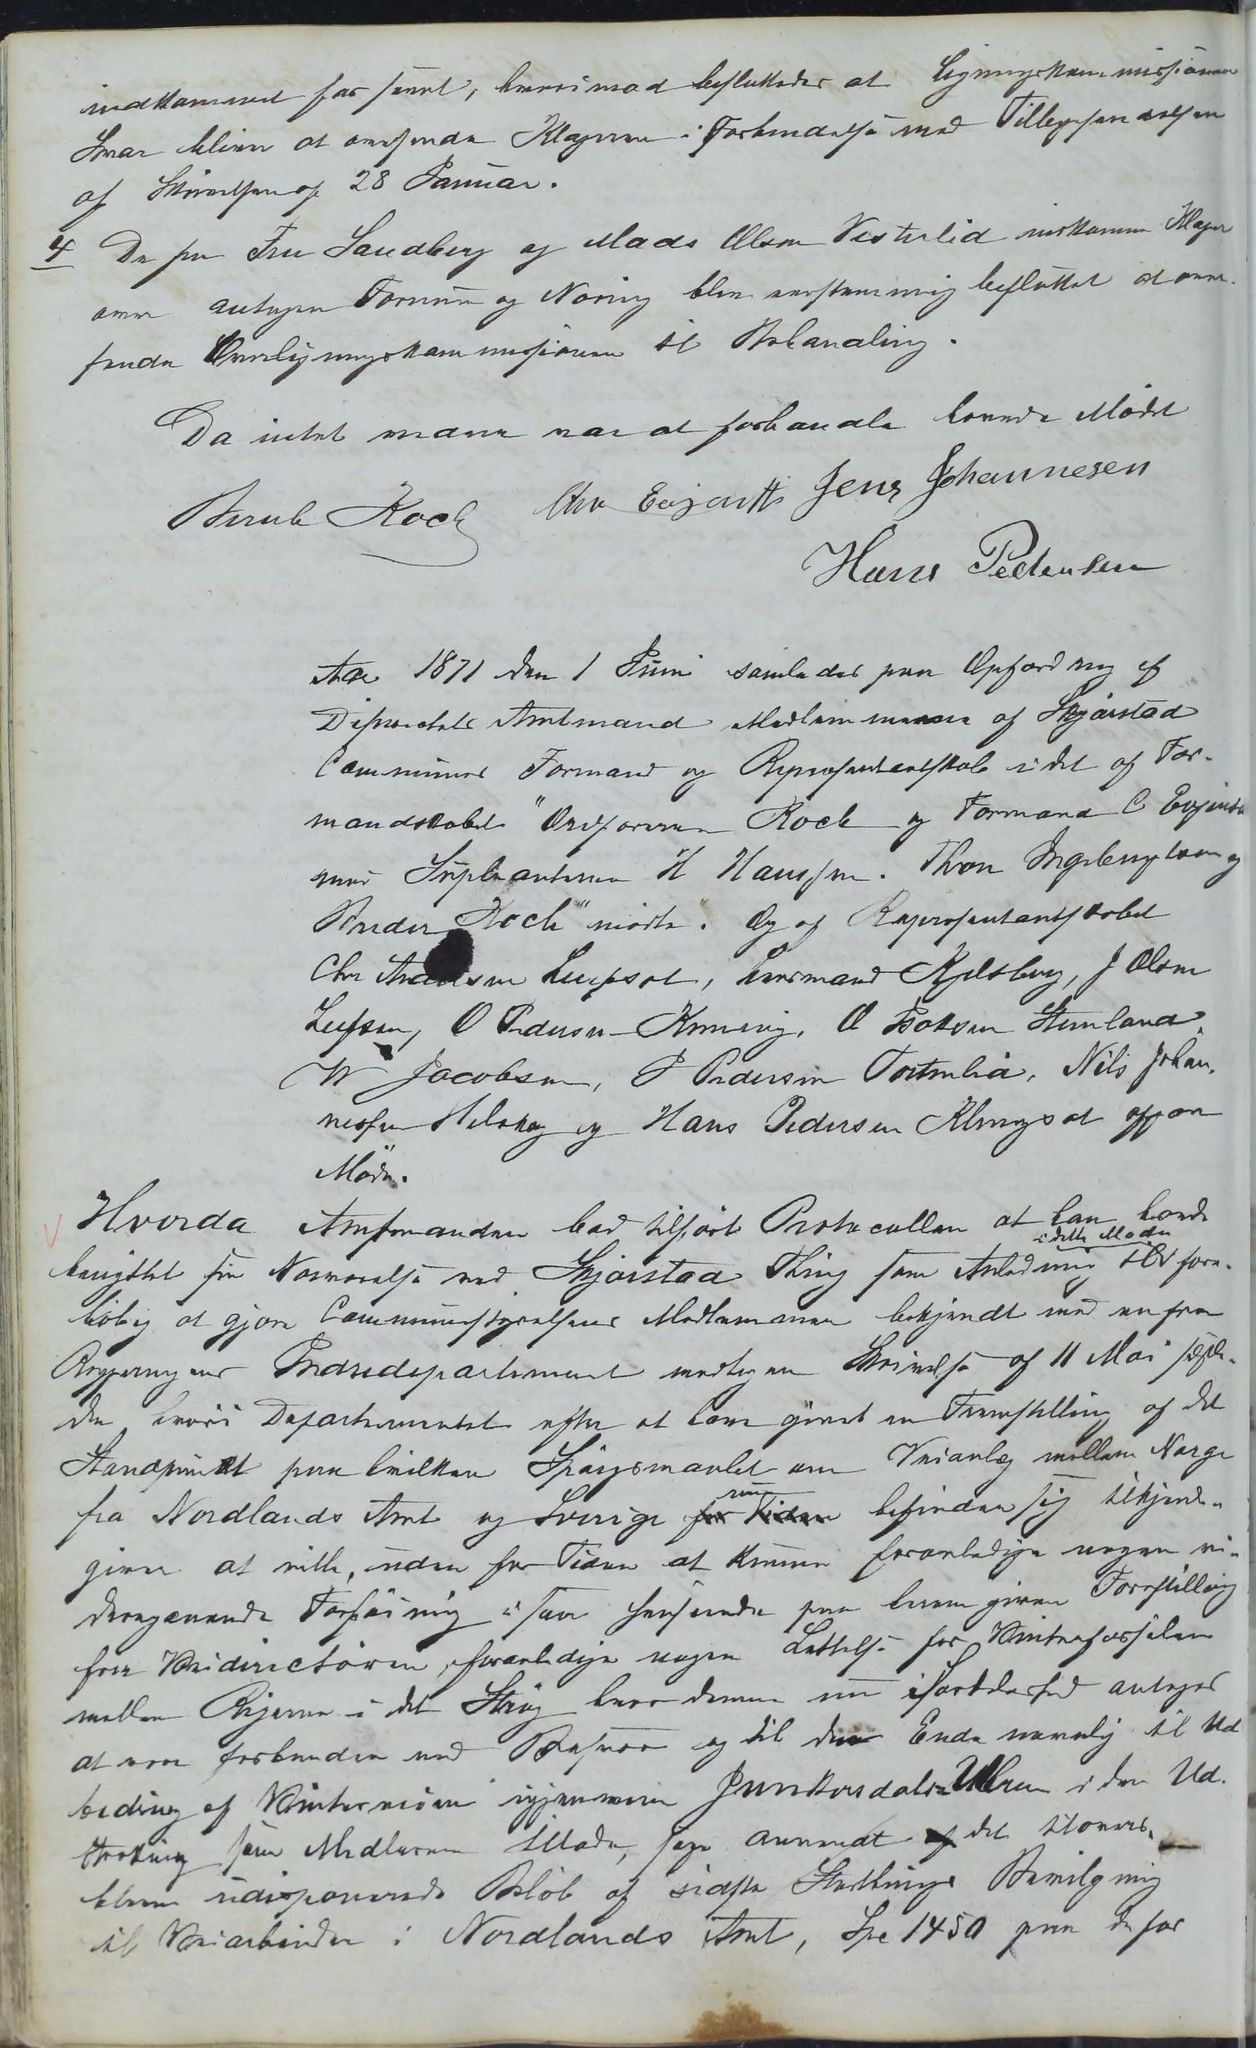 indkommet for sent, hvorimod besluttedes at Ligningskommissionen
Svar bliver at oversende Klageren i Forbindelse med
af Skrivelsen af 28 Januar.
4 De fra Tru Sandberg og Mads Olsen Vesterlid indkomne Klager
over antagen Formue og Næring blev eenstemmig besluttet at over-
sende Overligningskommissionen til Behandling.
Da intet mere var at forhandle hævedes Mødet
Bernh Koch Chr Jens Johannesen
Hans Pedersen
Aar 1871 den 1 Juni samledes paa Opfordring af
Districtets Amtmand Medlemmerne af Skjærstad
Communes Formand og Representantskab idet af For-
mandskabet "Ordføreren Koch og Formand C
med Supleanterne H Hansen. Thore Ingebrigtsen og
Peder Koch "mødte". Og af Representantskabet
Chr Andersen, Lensmand Kjelsberg, J Olsen
O Pedersen O Isaksen
W Jacobsen, P Pedersen Nils Johan-
nesen og Hans Pedersen Klungset
Møde.
Hvorda Amtmanden bad tilført Protocollen at han havde
i dette Møde
benyttet sin Nærværelse ved Skjærstad Thing som Anledning til fore-
løbig at gjøre Communestyrelsens Medlemmer bekjendt med en fra
Regjeringens Indredepartement modtagen Skrivelse af 11 Mai
hvori Departementet efter at have givet en Fremstilling af det
Standpunkt paa hvilken Spørgsmaalet om Veianlæg mellem Norge
fra Nordlands Amt og Sverige for Tiden befinder sig tilkjende-
nu
giver at ville, uden for Tiden at kunne foranledige nogen vi-
deregaaende Forføining i saa Henseende paa herom given Forestilling
fra Veidirectøren, foranledige nogen Lettelse for Vinterfærselen
mellem Rigerne i det Strøg hvor denne nu i antages
at være forbunden med Besvær og til den Ende navnlig til Ud-
bedring af Vinterveien igjennem Junkersdals Uren i den Ud-
strekning som Midlerne tillade, søge anvendt det
blevne udisponerede Beløb af sidste Storthings Bevilgning
til Veiarbeider i Nordlands Amt, Spe 1450 paa de for